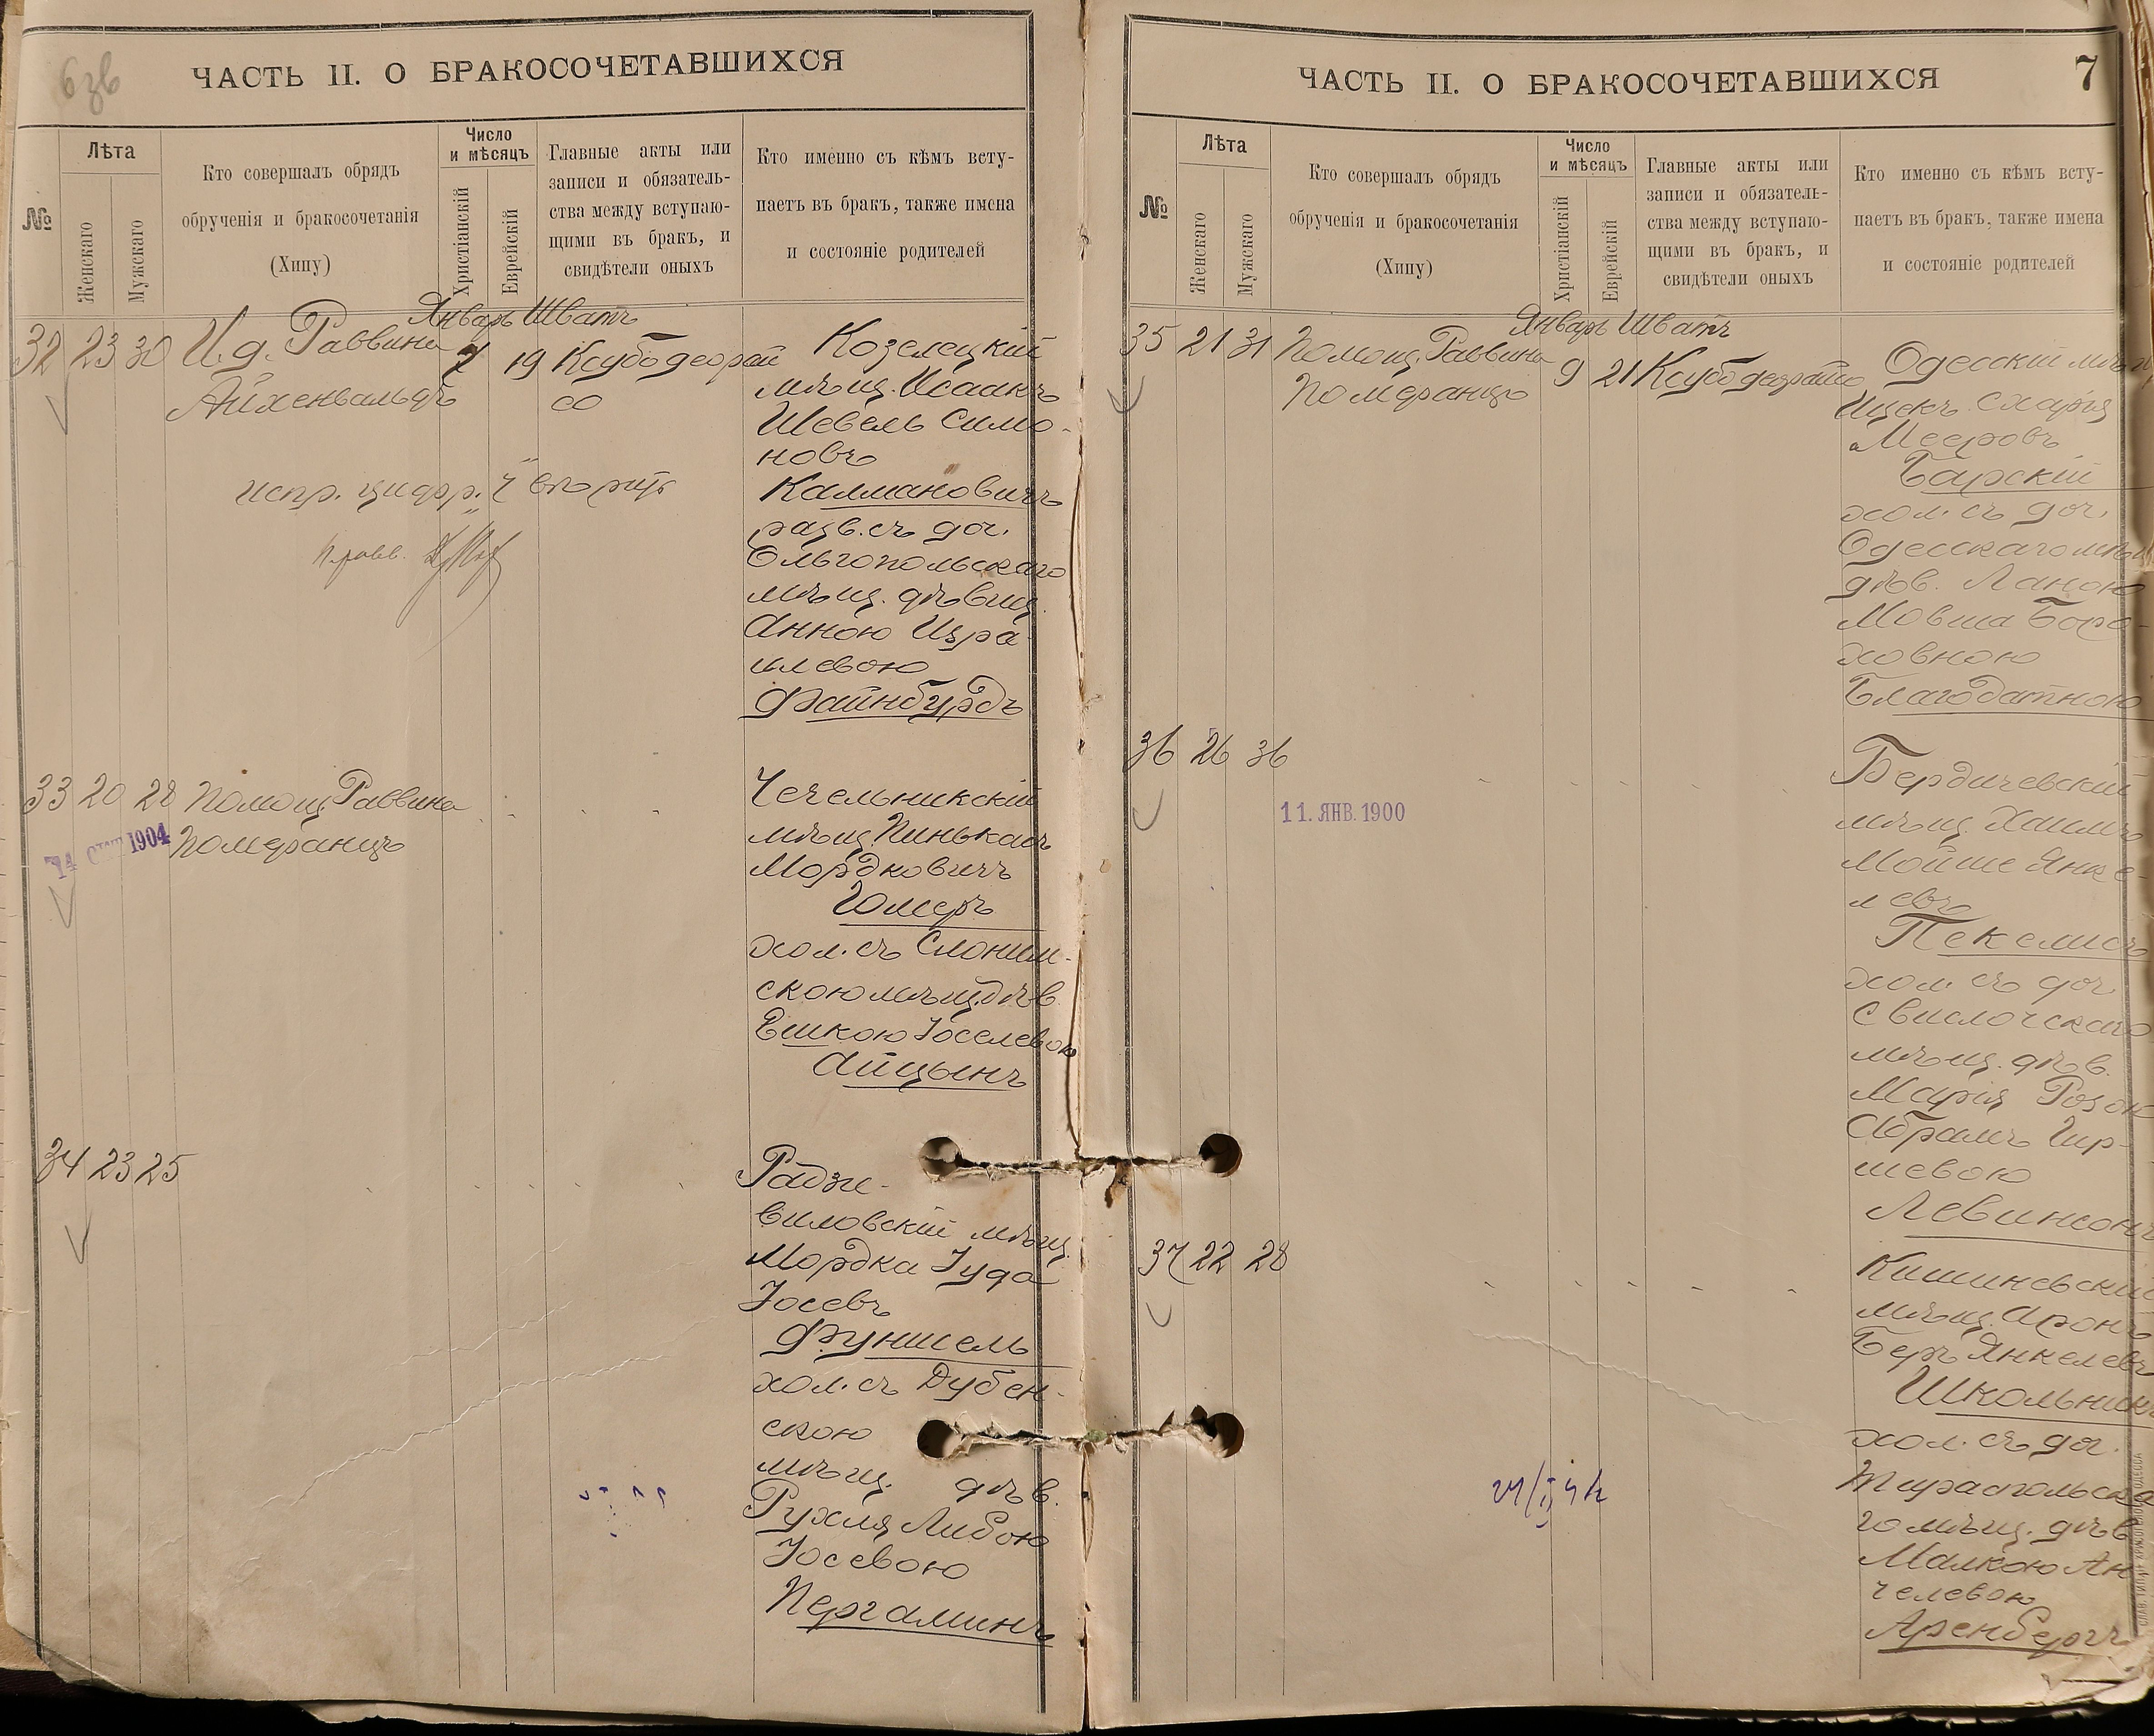 ЧАСТЬ II. О БРАКОСОЧЕТАВШИХСЯ
№
Лѣта
Женскаго
Мужскаго
Кто совершалъ обрядъ
обрученія и бракосочетанія
(Хипу)
Число
и мѣсяцъ
Христіанскій
Еврейскій
Главные акты или
записи и обязатель-
ства между вступаю-
щими въ бракъ, и
свидѣтели оныхъ
Кто именно съ кѣмъ всту-
паетъ въ бракъ, также имена
и состояніе родителей
Январь Шватъ
32 23 30 И.д. Раввина 7 19 Ксубо деорай
Айхенвальдъ со
испр. цифр. „7“ вѣрить
Козелецкій
мѣщ. Исаакъ
Шевель Симо-
новъ
Калмановичъ
разв. съ доч.
Ольгопольскаго
мѣщ. дѣвиц.
Анною Изра-
илевою
Файнбурдъ
33 20 28 Помощ. Раввина
Померанцъ
1904
Чечельникскій
мѣщ. Пинькасъ
Мордковичъ
Юмеръ
хол. съ Слоним-
скою мѣщ. дѣв.
Ешкою Іоселевою
Айцынъ
34 23 25
Радзи-
виловскій мѣщ.
Мордка Іуда
Іосевъ
Фуншель
хол. съ Дубен-
скою
мѣщ. дѣв.
Рухля Либою
Іосевою
Пергаминъ
ЧАСТЬ II. О БРАКОСОЧЕТАВШИХСЯ
7
№
Лѣта
Женскаго
Мужскаго
Кто совершалъ обрядъ
обрученія и бракосочетанія
(Хипу)
Число
и мѣсяцъ
Христіанскій
Еврейскій
Главные акты или
записи и обязатель-
ства между вступаю-
щими въ бракъ, и
свидѣтели оныхъ
Кто именно съ кѣмъ всту-
паетъ въ бракъ, также имена
и состояніе родителей
Январь Шватъ
35 21 31 Помощ. Раввина 9 21 Ксубо деорайсо
Померанцъ
Одесскій мѣщ
Ицекъ Схарія
Мееровъ
Барскій
хол. съ доч.
Одесскаго мѣщ
дѣв. Ханою
Мовша Боро-
ховною
Благодатною
36 26 36
11. ЯНВ. 1900
Бердичевскій
мѣщ. Хаимъ
Мойше Янке-
левъ
Пекелисъ
хол. съ доч.
Свислочскаго
мѣщ. дѣв.
Марія Розою
Абрамъ Гир-
шевою
Левинсонъ
37 22 28
Кишиневскій
мѣщ. Аронъ
Беръ Янкелевъ
Школьникъ
хол. съ доч.
Тираспольска
го мѣщ. дѣв.
Малкою Ан
челевою
Аренбергъ